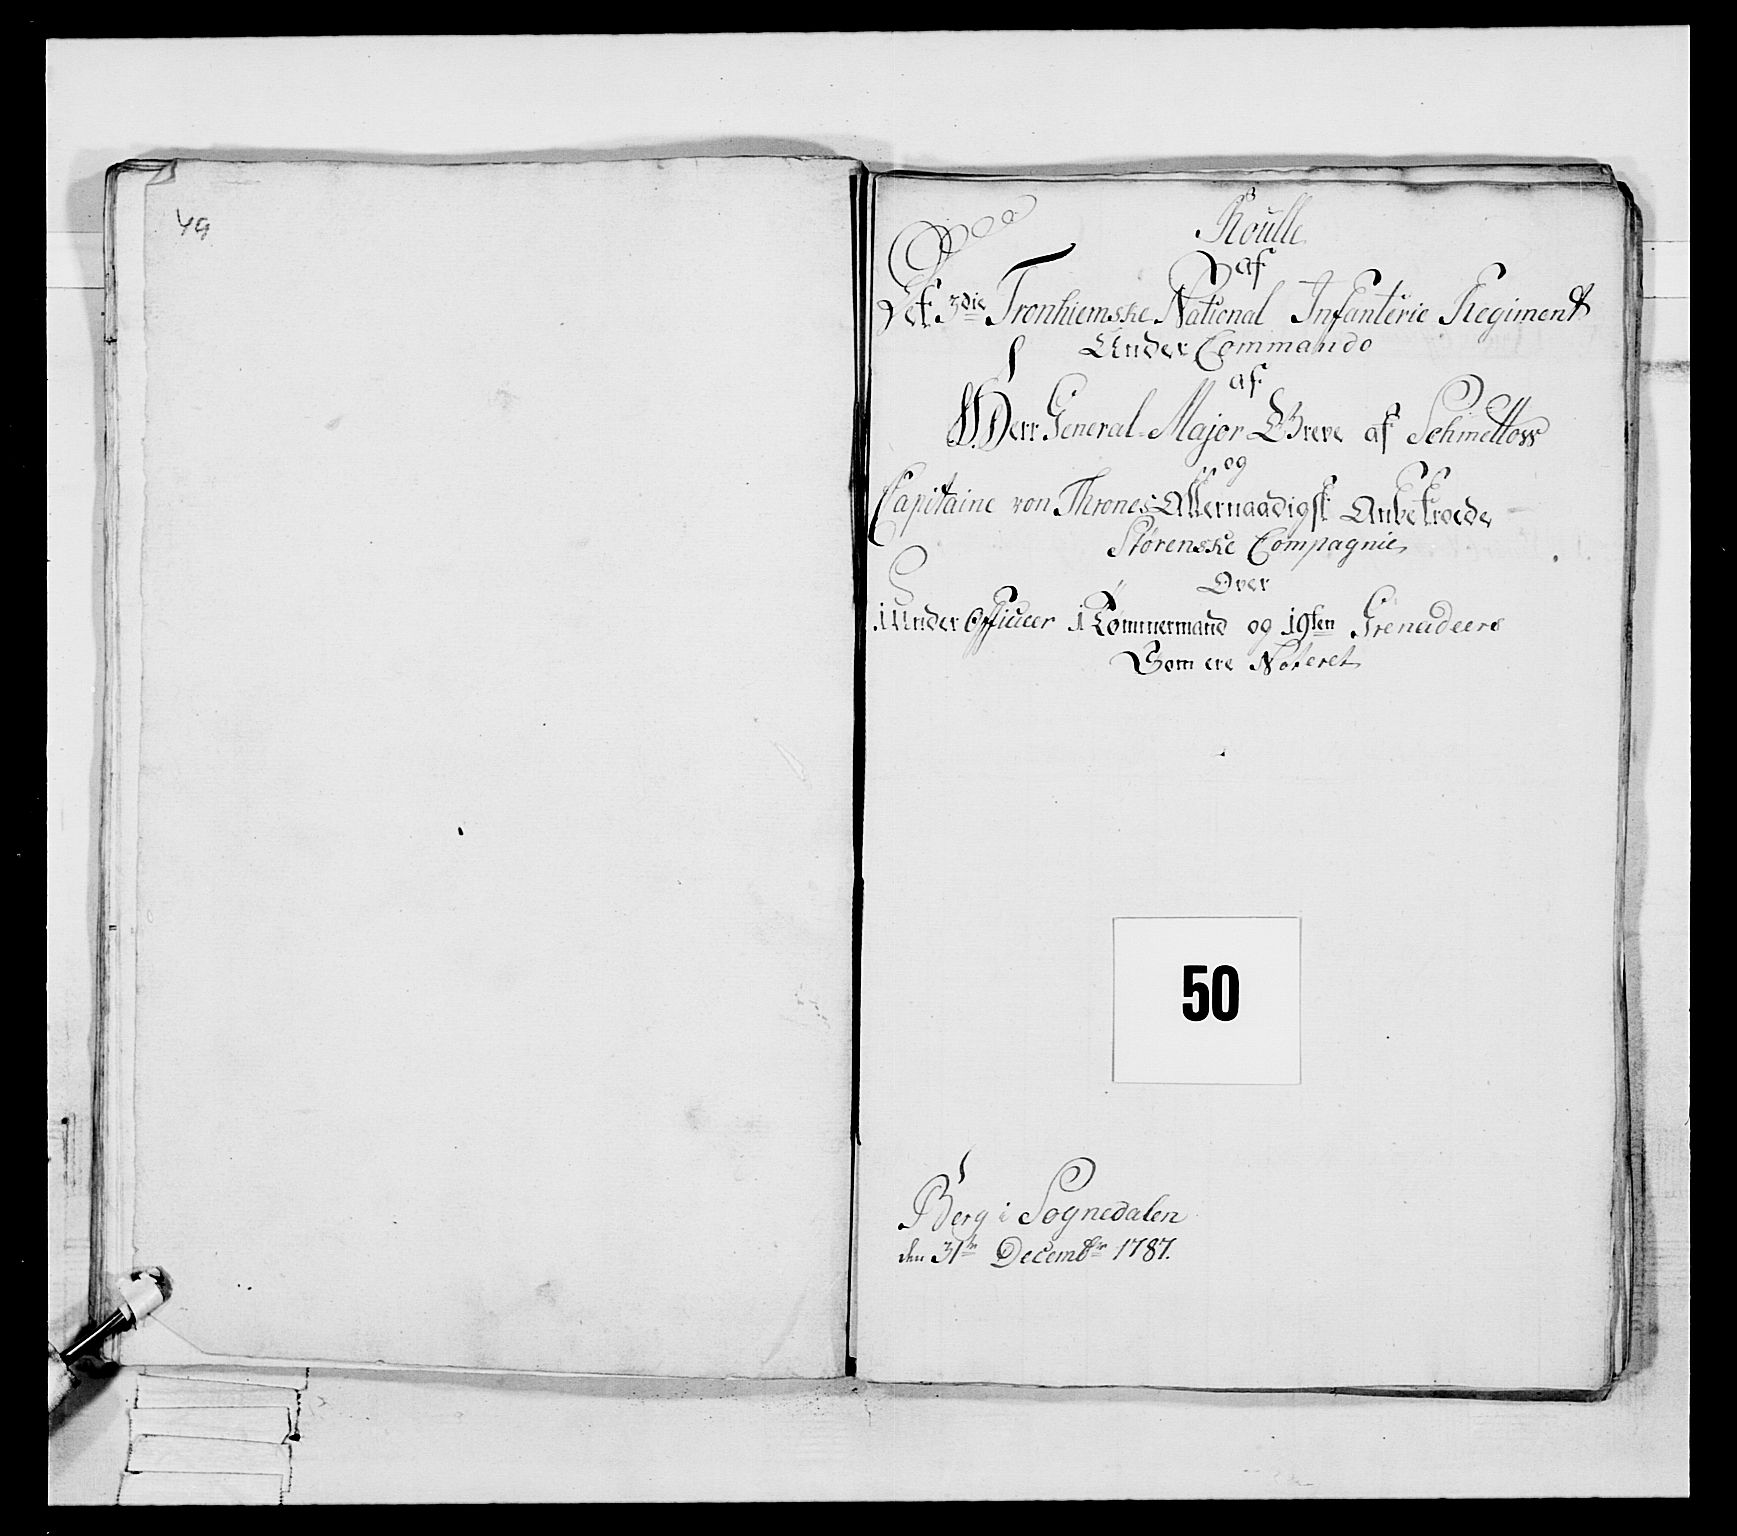 49
Roulle
af
Det 3die Tronhiemske National Infanterie Regiment
Under Commando
af
Herr General-Major Greve af Schmettow
og
Capitaine von Thrones Allernaadigst Anbetroede
Størenske Compagnie
Over
1 Under Officeer 1 Tømmermand og 19ten Grenadeers
Som ere Noteret
50
Berg i Sognedalen
den 31te Decembr 1787.